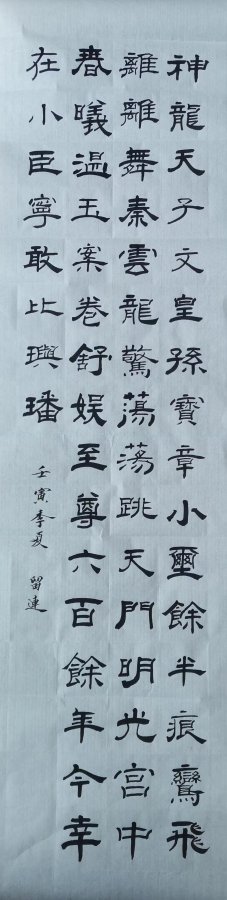 神龍天子文皇孫寶章小璽餘半痕鸞飛
離離舞秦雲龍驚蕩蕩跳天門明光宮中
春曦温玉案卷舒娱至尊六百餘年今幸
在小臣寧敢比璵璠
壬寅季夏 留連